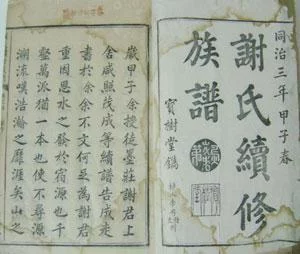 同治三年甲子春
謝氏續修
族譜
寶樹堂鐫
歲甲子余授徒臺莊謝君上
舍咸熙茂成等續譜告成來
書於余余不文何足為謝君
重因思水之發於宿源也千
壑萬派猶一本也使不尋源
溯流嘆浩瀚之靡涯矣山之